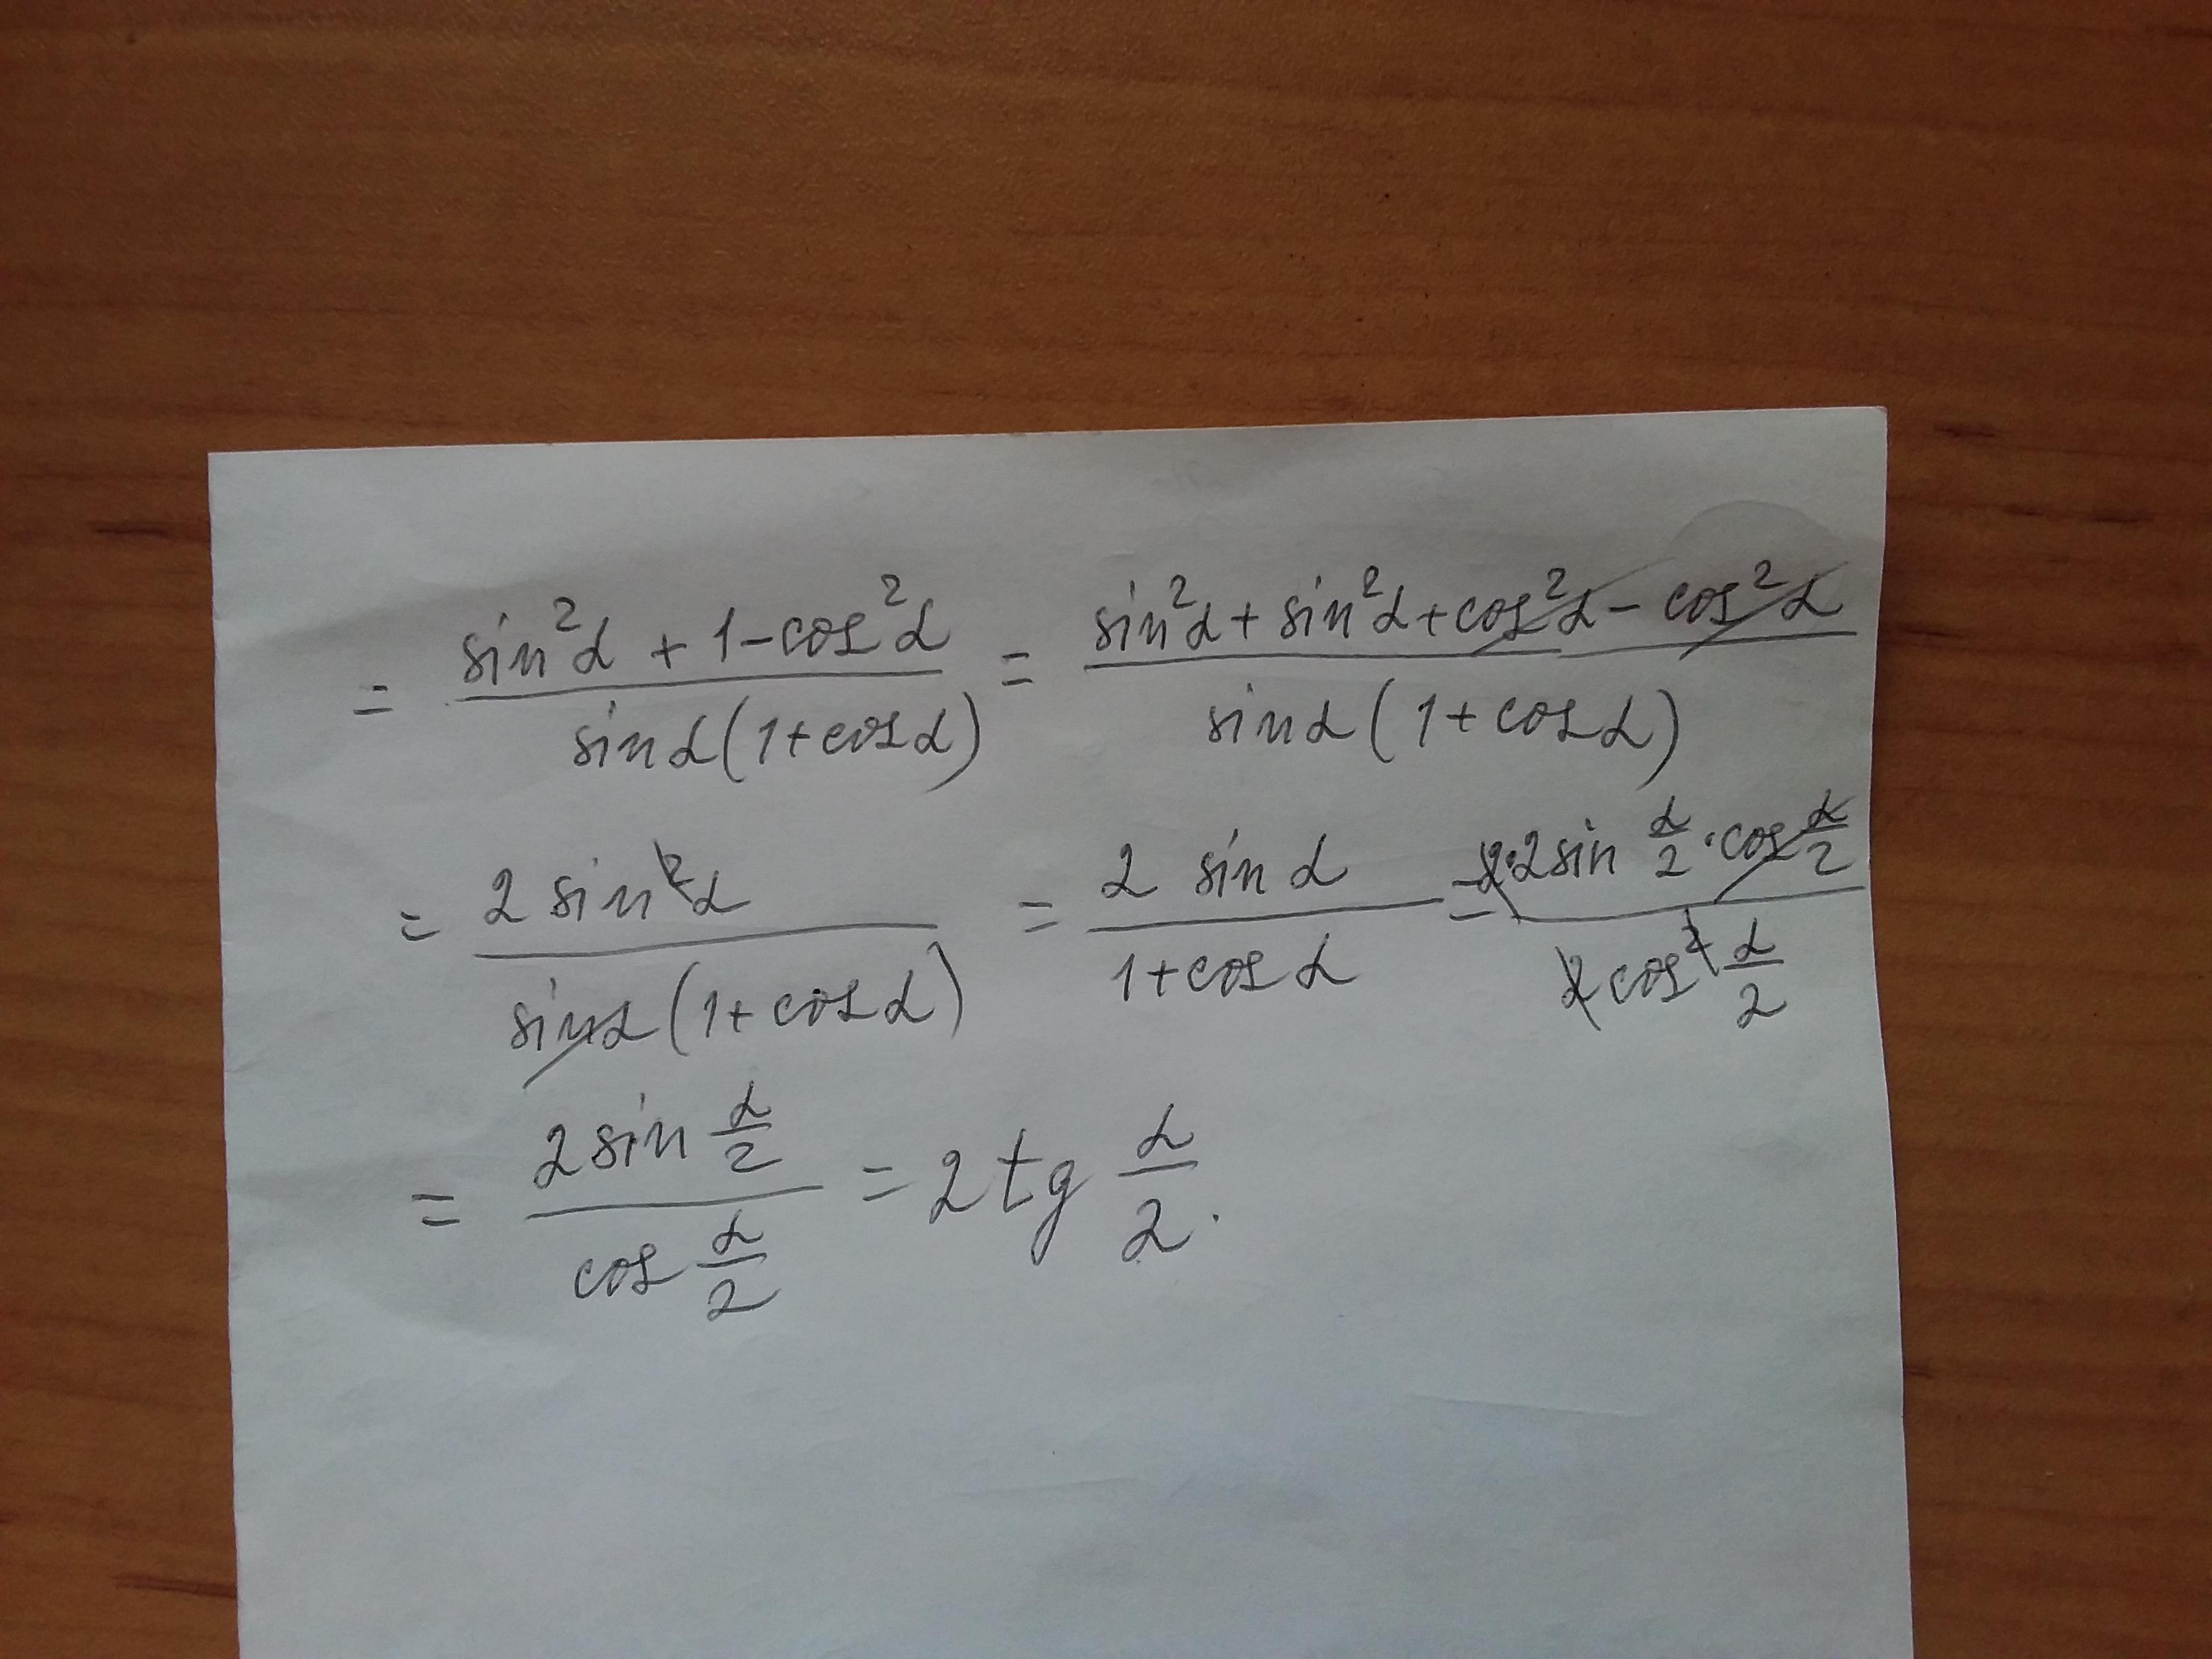 = (sin²α + 1 - cos²α) / (sin α (1 + cos α)) = (sin²α + sin²α + cos²α - cos²α) / (sin α (1 + cos α))
= (2 sin²α) / (sin α (1 + cos α)) = (2 sin α) / (1 + cos α) = (2·2 sin α/2 · cos α/2) / (2 cos² α/2)
= (2 sin α/2) / (cos α/2) = 2 tg α/2.